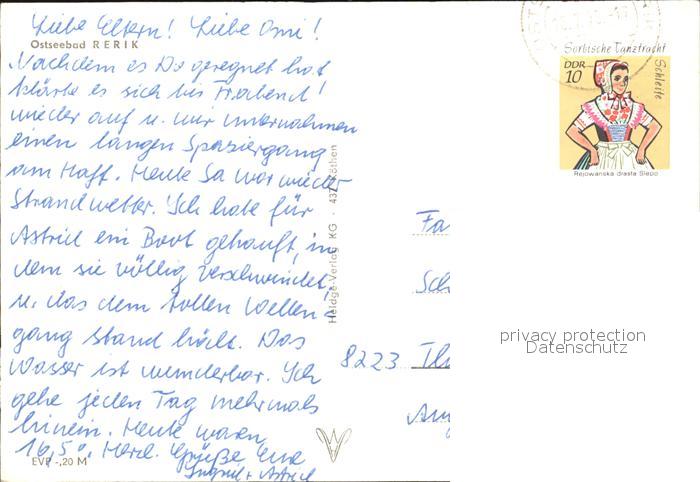 Liebe Eltern! Liebe Omi!
Ostseebad RERIK
Nachdem es Do geregnet hat
klärte es sich bis Frabend!
wieder auf u. wir unternahmen
einen langen Spaziergang
am Haff. Heute Sa war wieder
Strandwetter. Ich habe für
Astrid ein Boot gekauft, in
dem sie völlig verschwindet,
u. das dem tollen Wellen-
gang stand hält. Das
Wasser ist wunderbar. Ich
gehe jeden Tag mehrmals
hinein. Heute waren
16,5°. Herzl. Grüße Eure
Ingrid + Astrid
EVP -,20 M
Heldge-Verlag KG · 437 Köthen
Sorbische Tanztracht
DDR
10
Schleife
Rejowanska drasta Slepo
Fa
Sch
8223 Th
Am
privacy protection
Datenschutz